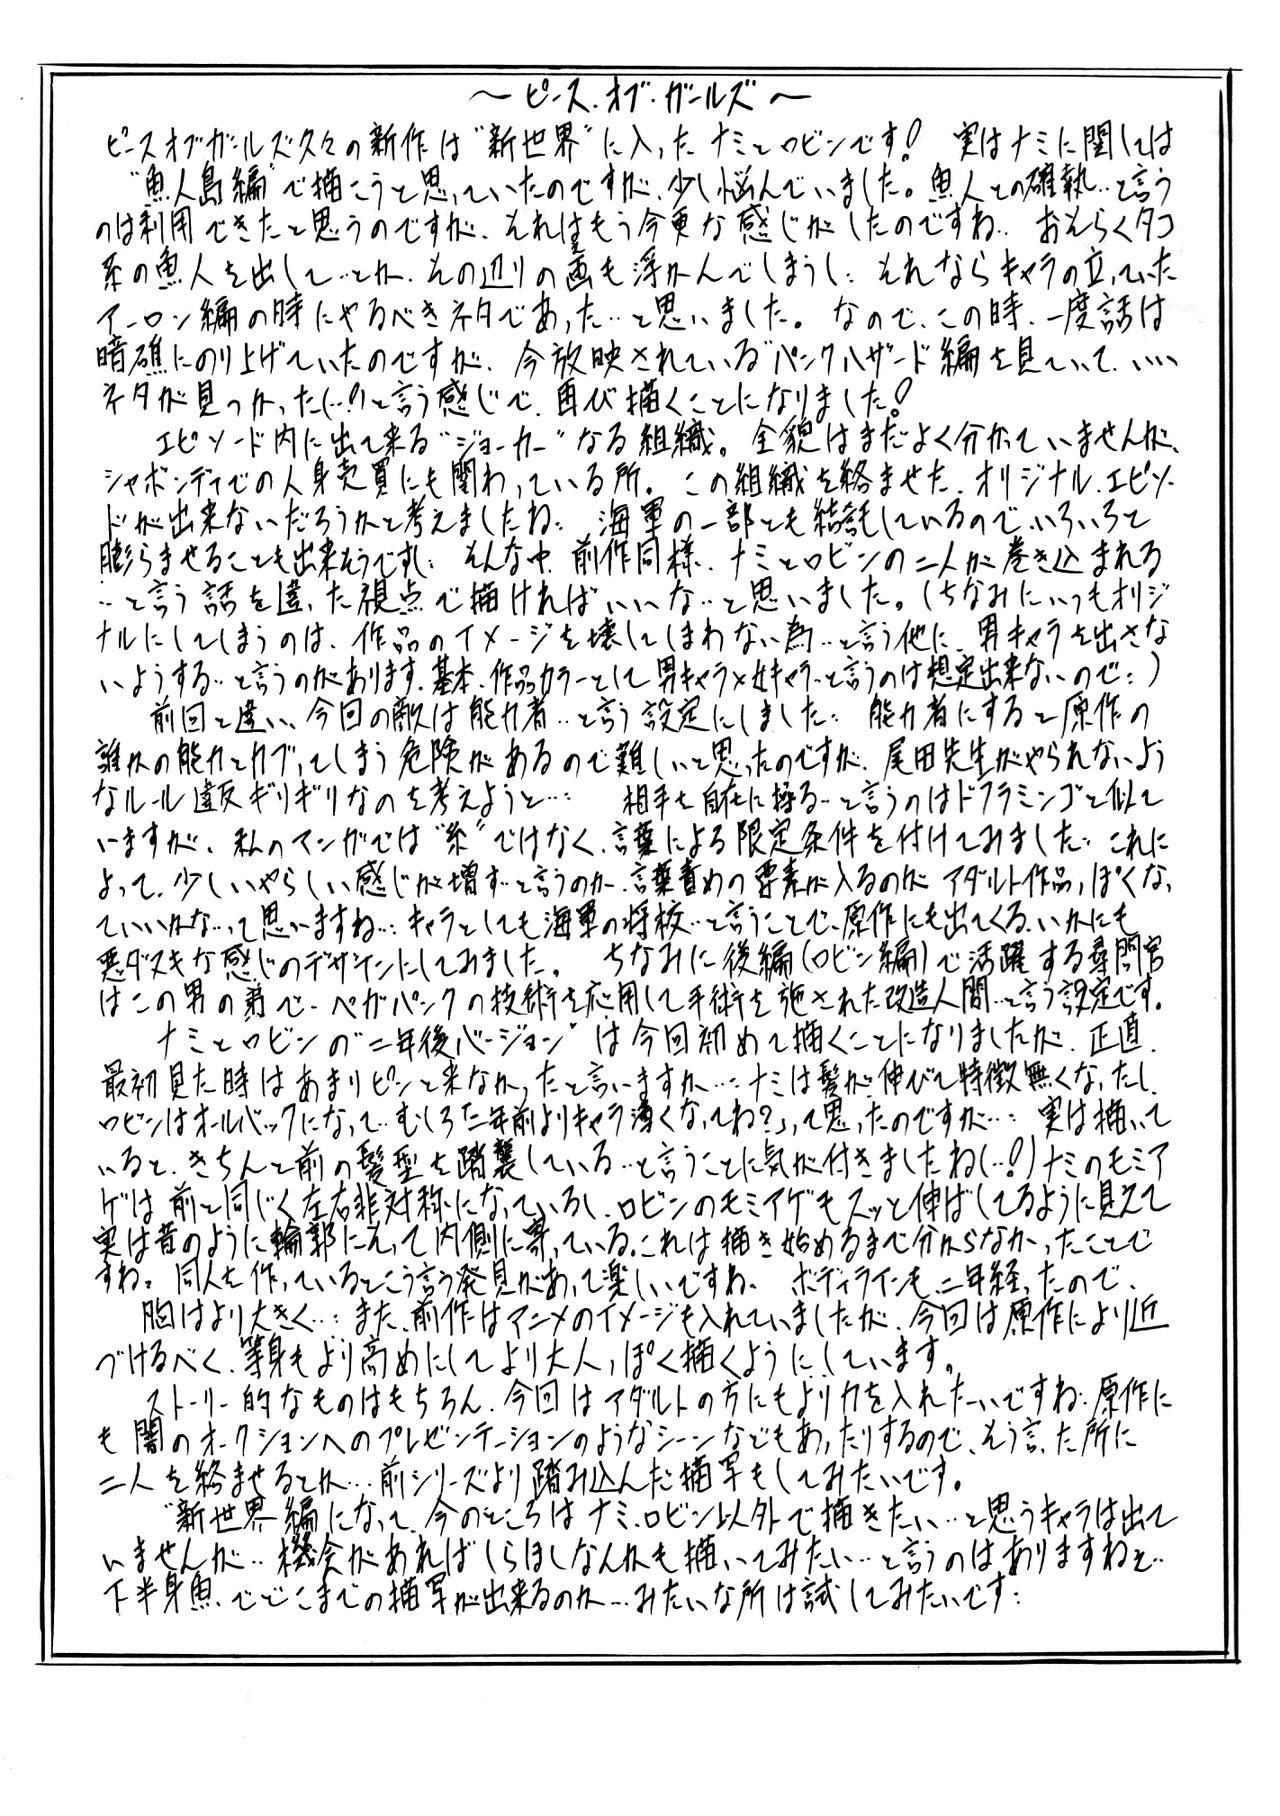 ～ピース・オブ・ガールズ～
ピースオブガールズ久々の新作は"新世界"に入った ナミとロビンです! 実はナミに関しては
"魚人島編"で描こうと思っていたのですが、少し悩んでいました。魚人との確執‥と言う
のは利用できたと思うのですが、それはもう今更な感じがしたのですね‥ おそらくタコ
系の魚人を出して‥とか、その辺りの画も浮かんでしまうし‥ それならキャラの立っていた
アーロン編の時にやるべきネタであった‥と思いました。 なので、この時、一度話は
暗礁にのり上げていたのですが、今放映されている"パンクハザード編を見ていて、‥‥
ネタが見つかった(‥!)と言う感じで、再び描くことになりました!
エピソード内に出て来る"ジョーカー"なる組織。全貌はまだよく分かっていませんが、
シャボンディでの人身売買にも関わっている所。この組織を絡ませた、オリジナル、エピソー
ドが出来ないだろうかと考えましたね‥ 海軍の一部とも結託しているので、いろいろと
膨らませることも出来そうですし‥ そんな中、前作同様、ナミとロビンの二人が巻き込まれる
‥と言う話を違った視点で描ければいいな‥と思いました。(ちなみにいつもオリジ
ナルにしてしまうのは、作品のイメージを壊してしまわない為‥と言う他に、男キャラを出さな
いようする‥と言うのがあります、基本、作品カラーとして男キャラ×女キャラ‥と言うのは想定出来ないので‥)
前回と違い、今回の敵は能力者‥と言う設定にしました‥ 能力者にすると原作の
誰かの能力とカブってしまう危険があるので難しいと思ったのですが、尾田先生がやられないよう
なルール違反ギリギリなのを考えようと‥‥ 相手を自在に操る‥と言うのはドフラミンゴと似て
いますが、私のマンガでは"糸"ではなく、言葉による限定条件を付けてみました‥ これに
よって、少しいやらしい感じが増す‥と言うのか、言葉責めの要素が入るのが アダルト作品っぽくなっ
ていいかな‥って思いますね‥‥ キャラとしても海軍の将校‥と言うことで、原作にも出てくる、いかにも
悪ダヌキな感じのデザインにしてみました。 ちなみに後編(ロビン編)で活躍する尋問官
はこの男の弟で‥ベガパンクの技術を応用して手術を施された改造人間‥と言う設定です。
ナミとロビンの"二年後バージョン"は今回初めて描くことになりましたが、正直、
最初見た時はあまりピンと来なかったと言いますか‥‥ナミは髪が伸びて特徴無くなったし、
ロビンはオールバックになって、むしろ「二年前よりキャラ薄くなってね?」って思ったのですが‥‥ 実は描いて
いると、きちんと前の髪型を踏襲している‥と言うことに気が付きましたね(‥!)ナミのモミア
ゲは前と同じく左右非対称になっているし、ロビンのモミアゲもスッと伸ばしてるように見えて
実は昔のように輪郭にそって内側に寄っている。これは描き始めるまで分からなかったことで
すね。同人を作っているとこう言う発見があって楽しいですね、 ボディラインも二年経ったので、
胸はより大きく‥‥また、前作はアニメのイメージも入れていましたが、今回は原作により近
づけるべく、等身もより高めにしてより大人っぽく描くようにしています。
ストーリー的なものはもちろん、今回はアダルトの方にもより力を入れたいですね‥原作に
も闇のオークションへのプレゼンテーションのようなシーンなどもあったりするので、そう言った所に
二人を絡ませるとか‥‥前シリーズより踏み込んだ描写もしてみたいです。
"新世界編"になって、今のところはナミ、ロビン以外で描きたい‥と思うキャラは出て
いませんが‥機会があればしらほしなんかも描いてみたい‥と言うのはありますねぇ‥
下半身魚、でどこまでの描写が出来るのか‥‥みたいな所は試してみたいです‥